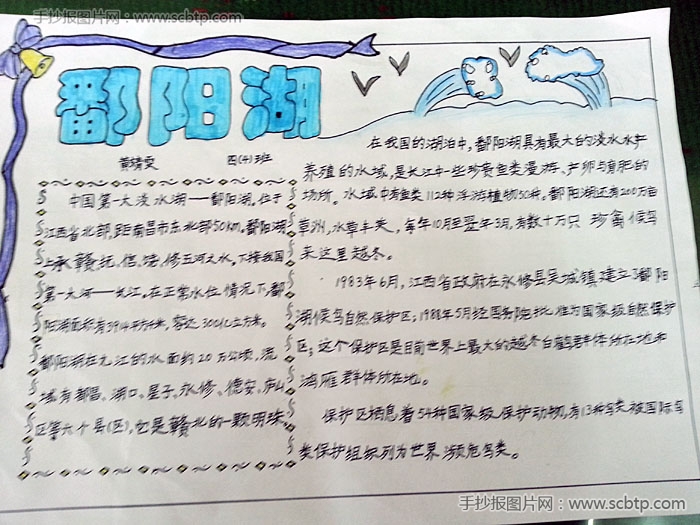 手抄报图片网:www.scbtp.com
鄱阳湖
黄婧雯 四(4)班
中国第一大淡水湖——鄱阳湖,位于
江西省北部,距南昌市东北部50km。鄱阳湖
上承赣、抚、信、饶、修五河之水,下接我国
第一大河——长江,在正常水位情况下,鄱
阳湖面积有3914平方千米,容达300亿立方米。
鄱阳湖在九江的水面约20万公顷,流
域有都昌、湖口、星子、永修、德安、庐山
区等六个县(区),它是赣北的一颗明珠。
在我国的湖泊中,鄱阳湖具有最大的淡水水产
养殖的水域,是长江中一些珍贵鱼类漫游、产卵与育肥的
场所。水域中有鱼类112种浮游植物50种。鄱阳湖还有200万亩
草州,水草丰失,每年10月至翌年3月,有数十万只珍禽候鸟
来这里越冬。
1983年6月,江西省政府在永修县吴城镇建立了鄱阳
湖候鸟自然保护区;1988年5月经国务院批准为国家级自然保护
区;这个保护区是目前世界上最大的越冬白鹤群体所在地和
鸿雁群体所在地。
保护区栖息着54种国家级保护动物,有13种鸟类被国际鸟
类保护组织列为世界濒危鸟类。
手抄报图片网:www.scbtp.com